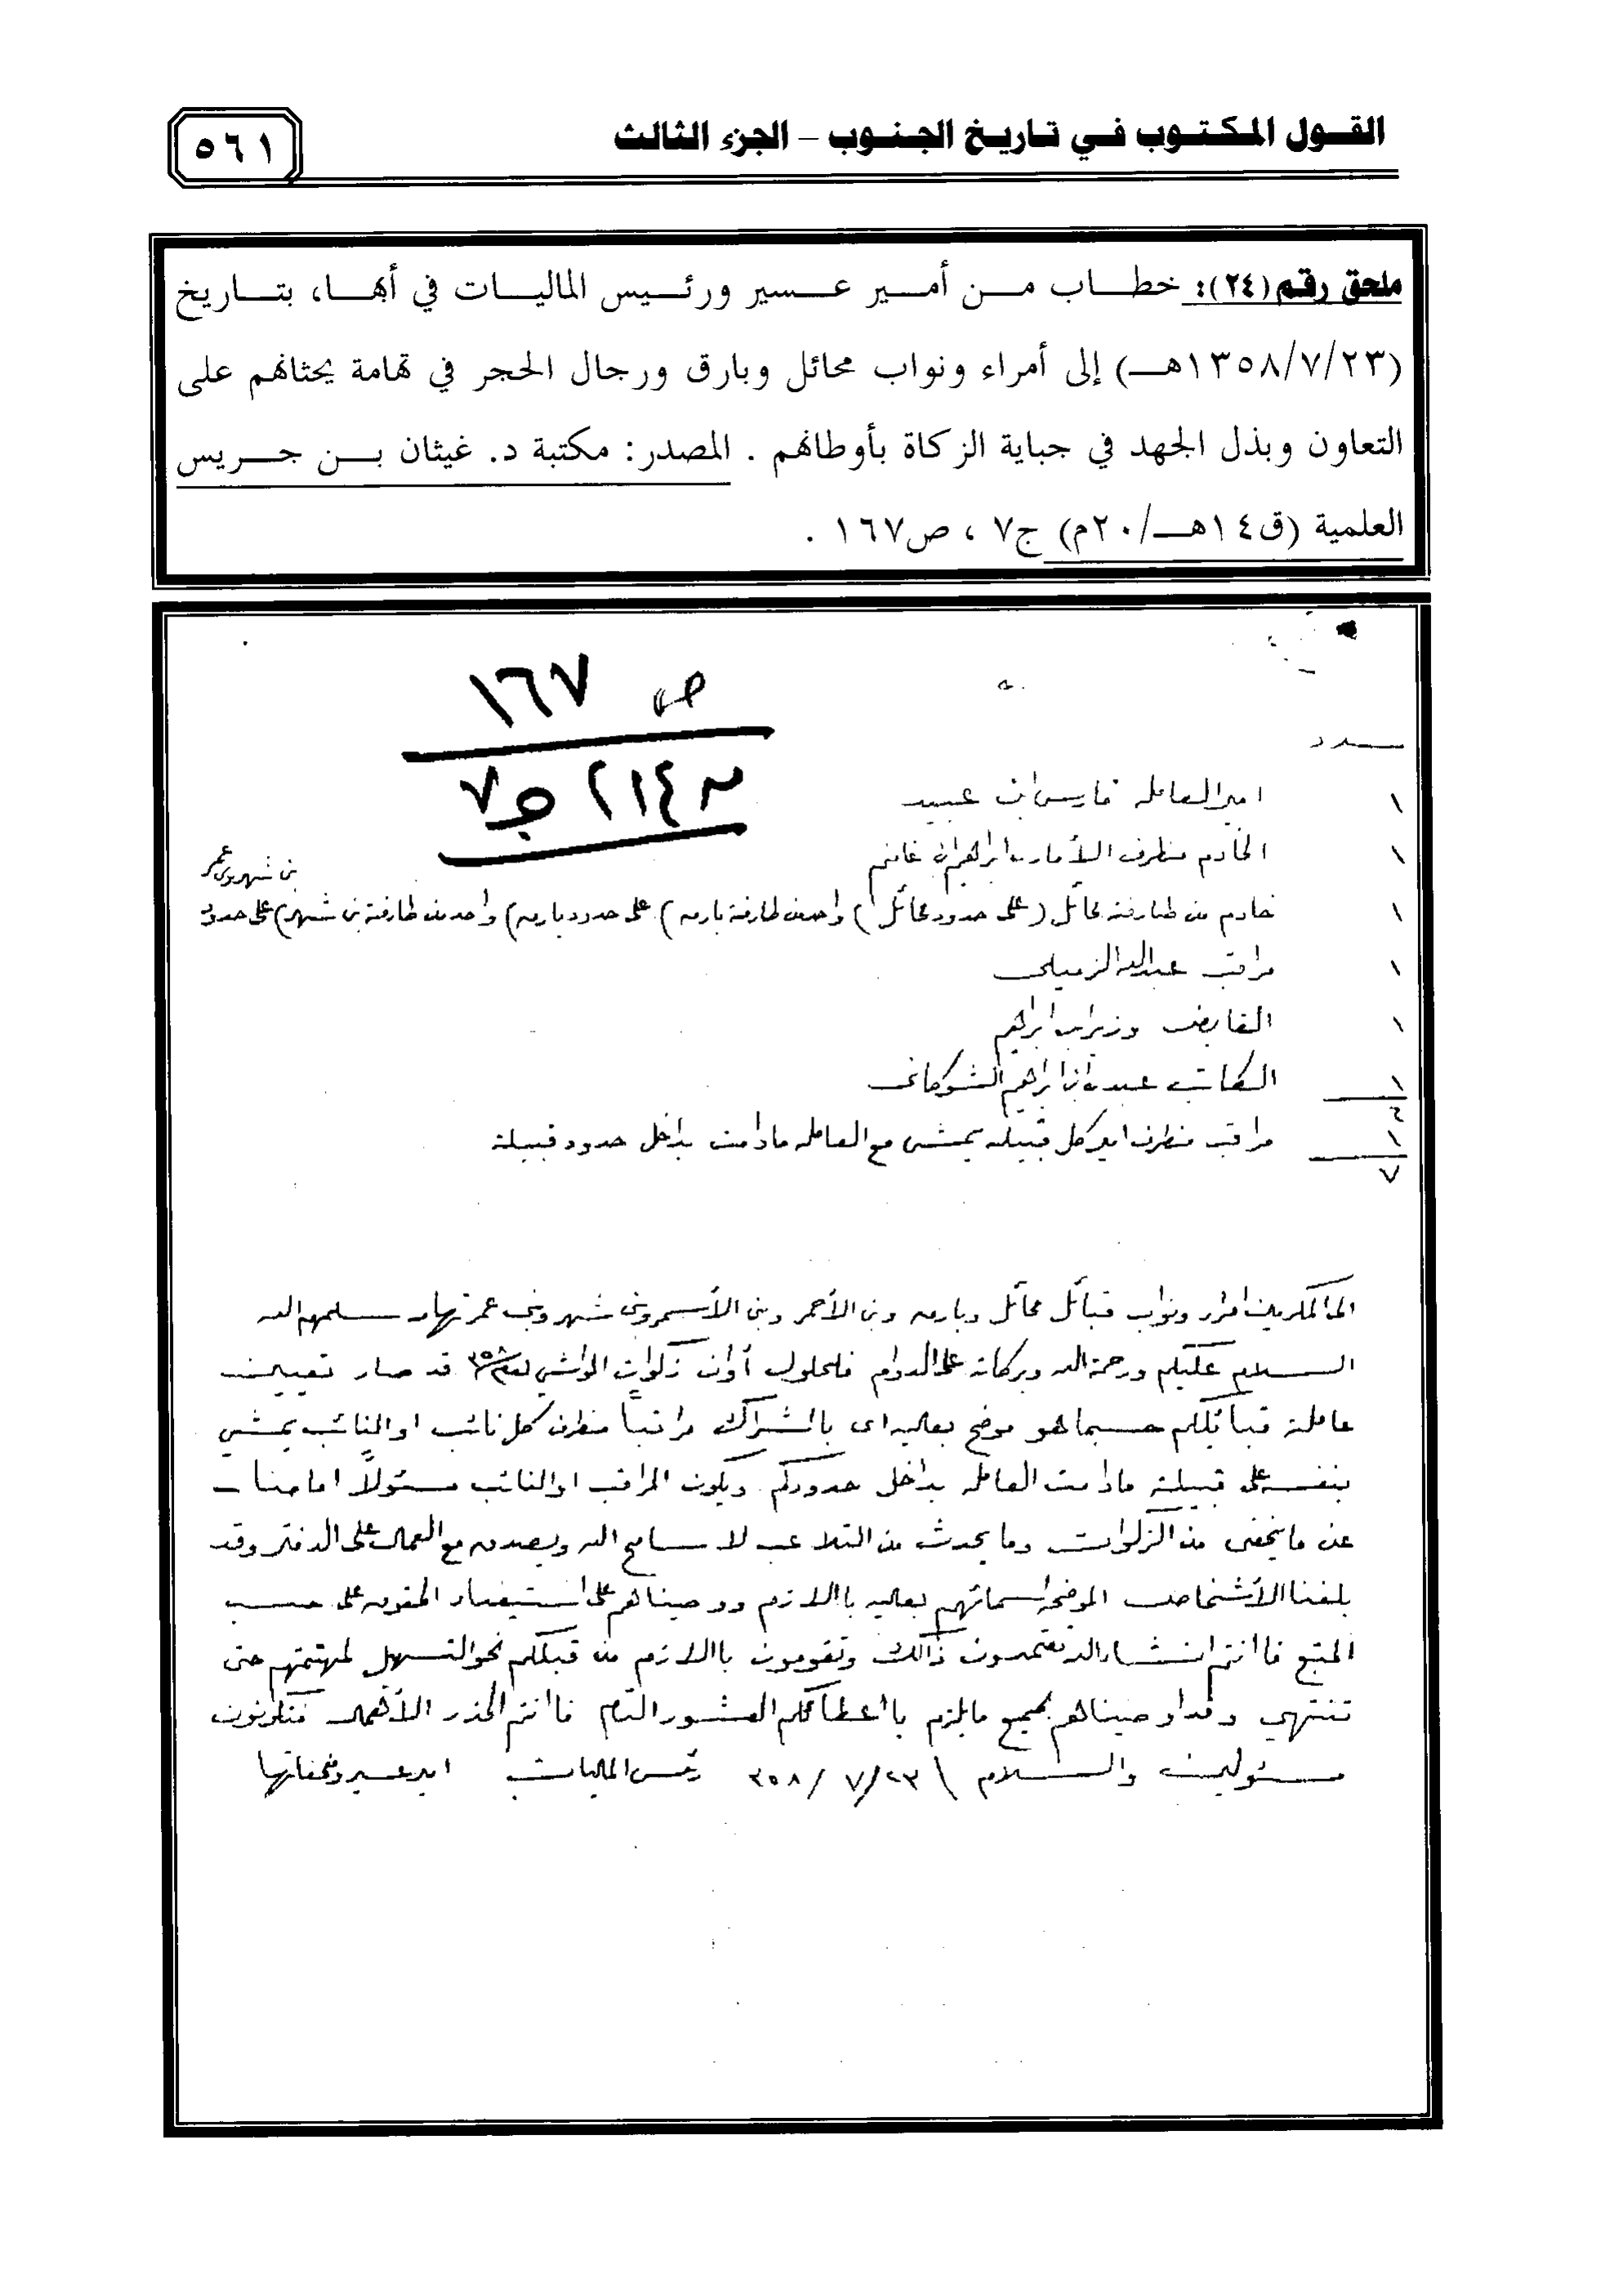 القول المكتوب في تاريخ الجنوب – الجزء الثالث
٥٦١
ملحق رقم (٢٤): خطاب من أمير عسير ورئيس الماليات في أبها، بتاريخ
(١٣٥٨/٧/٢٣هـ) إلى أمراء ونواب محائل وبارق ورجال الحجر في تهامة يحثانهم على
التعاون وبذل الجهد في جباية الزكاة بأوطانهم . المصدر: مكتبة د. غيثان بن جريس
العلمية (ق١٤هـ/٢٠م) ج٧ ، ص١٦٧ .
ص ١٦٧
ج٧
عدد
١ امير العامله فارس ابن عبيد
١ الخادم منطرف الأماره ابراهيم ابن غانم
بني شهر وبني عمر
١ خادم من طارفة محائل (على حدود محائل) واحد من طارفة بارق) على حدود بارق) واحد من طارفة بني شهر) على حدود
١ مراقب عبدالله الزميلي
١ القابض وزير ابن ابراهيم
١ الكاتب عبده ابن ابراهيم الشوكاني
٦
١ مراقب منطرف امير كل قبيله يمشي مع العامله مادامت بداخل حدود قبيلة
٧
الى المكرمين امراء ونواب قبائل محائل وبارق وبني الأحمر وبني الأسمر وبني شهر وبني عمر تهامه سلمهم الله
السلام عليكم ورحمة الله وبركاته على الدوام فلحلول أوان زكوات المواشي لعام ٣٥٨ قد صار تعيين
عاملة قبائلكم حسبما هو موضح بعاليه اي بالشراك مراقباً منطرف كل نائب او النائب يمشي
بنفسه على قبيلة مادامت العامله بداخل حدودكم ويكون المراقب او النائب مسئولاً امامنا
عن ما يخفى من الزكوات وما يحدث من التلاعب لا سامح الله ويصدق مع العمال على الدفتر وقد
بلغنا الأشخاص الموضحة اسمائهم بعاليه بااللازم ووصيناهم على استيفاء الحقوق على حسب
المتبع فاانتم انشاءالله تعتمدون ذالك وتقومون بااللازم من قبلكم نحو التسهيل لمهمتهم حتى
تنتهي وقد اوصيناهم بجميع مايلزم بااعطائكم العشور التام فاانتم الحذر الأهمال فتكونون
مسئولين والسلام ٣٥٨/٧/٢٣ رئيس الماليات امير عسير وملحقاتها